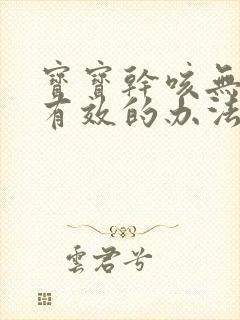 寶寶幹咳無
有效的办法
雲君兮